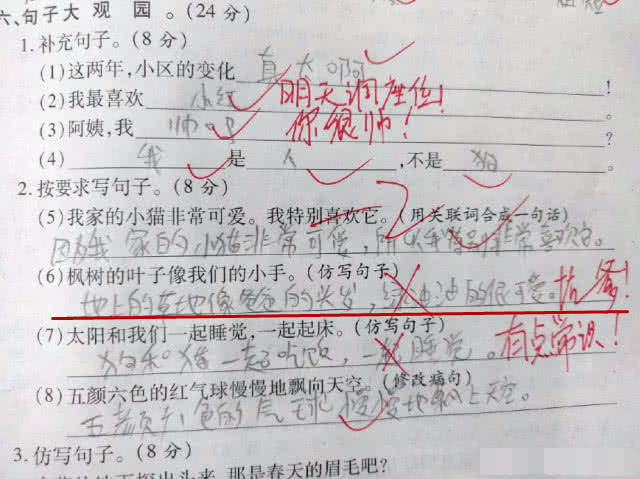 六、句子大观园。(24分)
1.补充句子。(8分)
(1)这两年,小区的变化 真大啊 !
(2)我最喜欢 小红 。 明天调座位!
(3)阿姨,我 帅吗 ? 你很帅!
(4) 我 是 人 ,不是 狗 。
2.按要求写句子。(8分) -2
(5)我家的小猫非常可爱。我特别喜欢它。(用关联词合成一句话)
因为我家的小猫非常可爱,所以我特别非常喜欢它。
(6)枫树的叶子像我们的小手。(仿写句子)
地上的草地像爸爸的头发,绿油油的很可爱。 坑爹!
(7)太阳和我们一起睡觉,一起起床。(仿写句子)
狗和猫一起吃饭,一起睡觉。 有点常识!
(8)五颜六色的红气球慢慢地飘向天空。(修改病句)
五颜六色的气球慢慢地飘上天空。
3.仿写句子。(8分)
出头来,那是春天的眉毛吧?